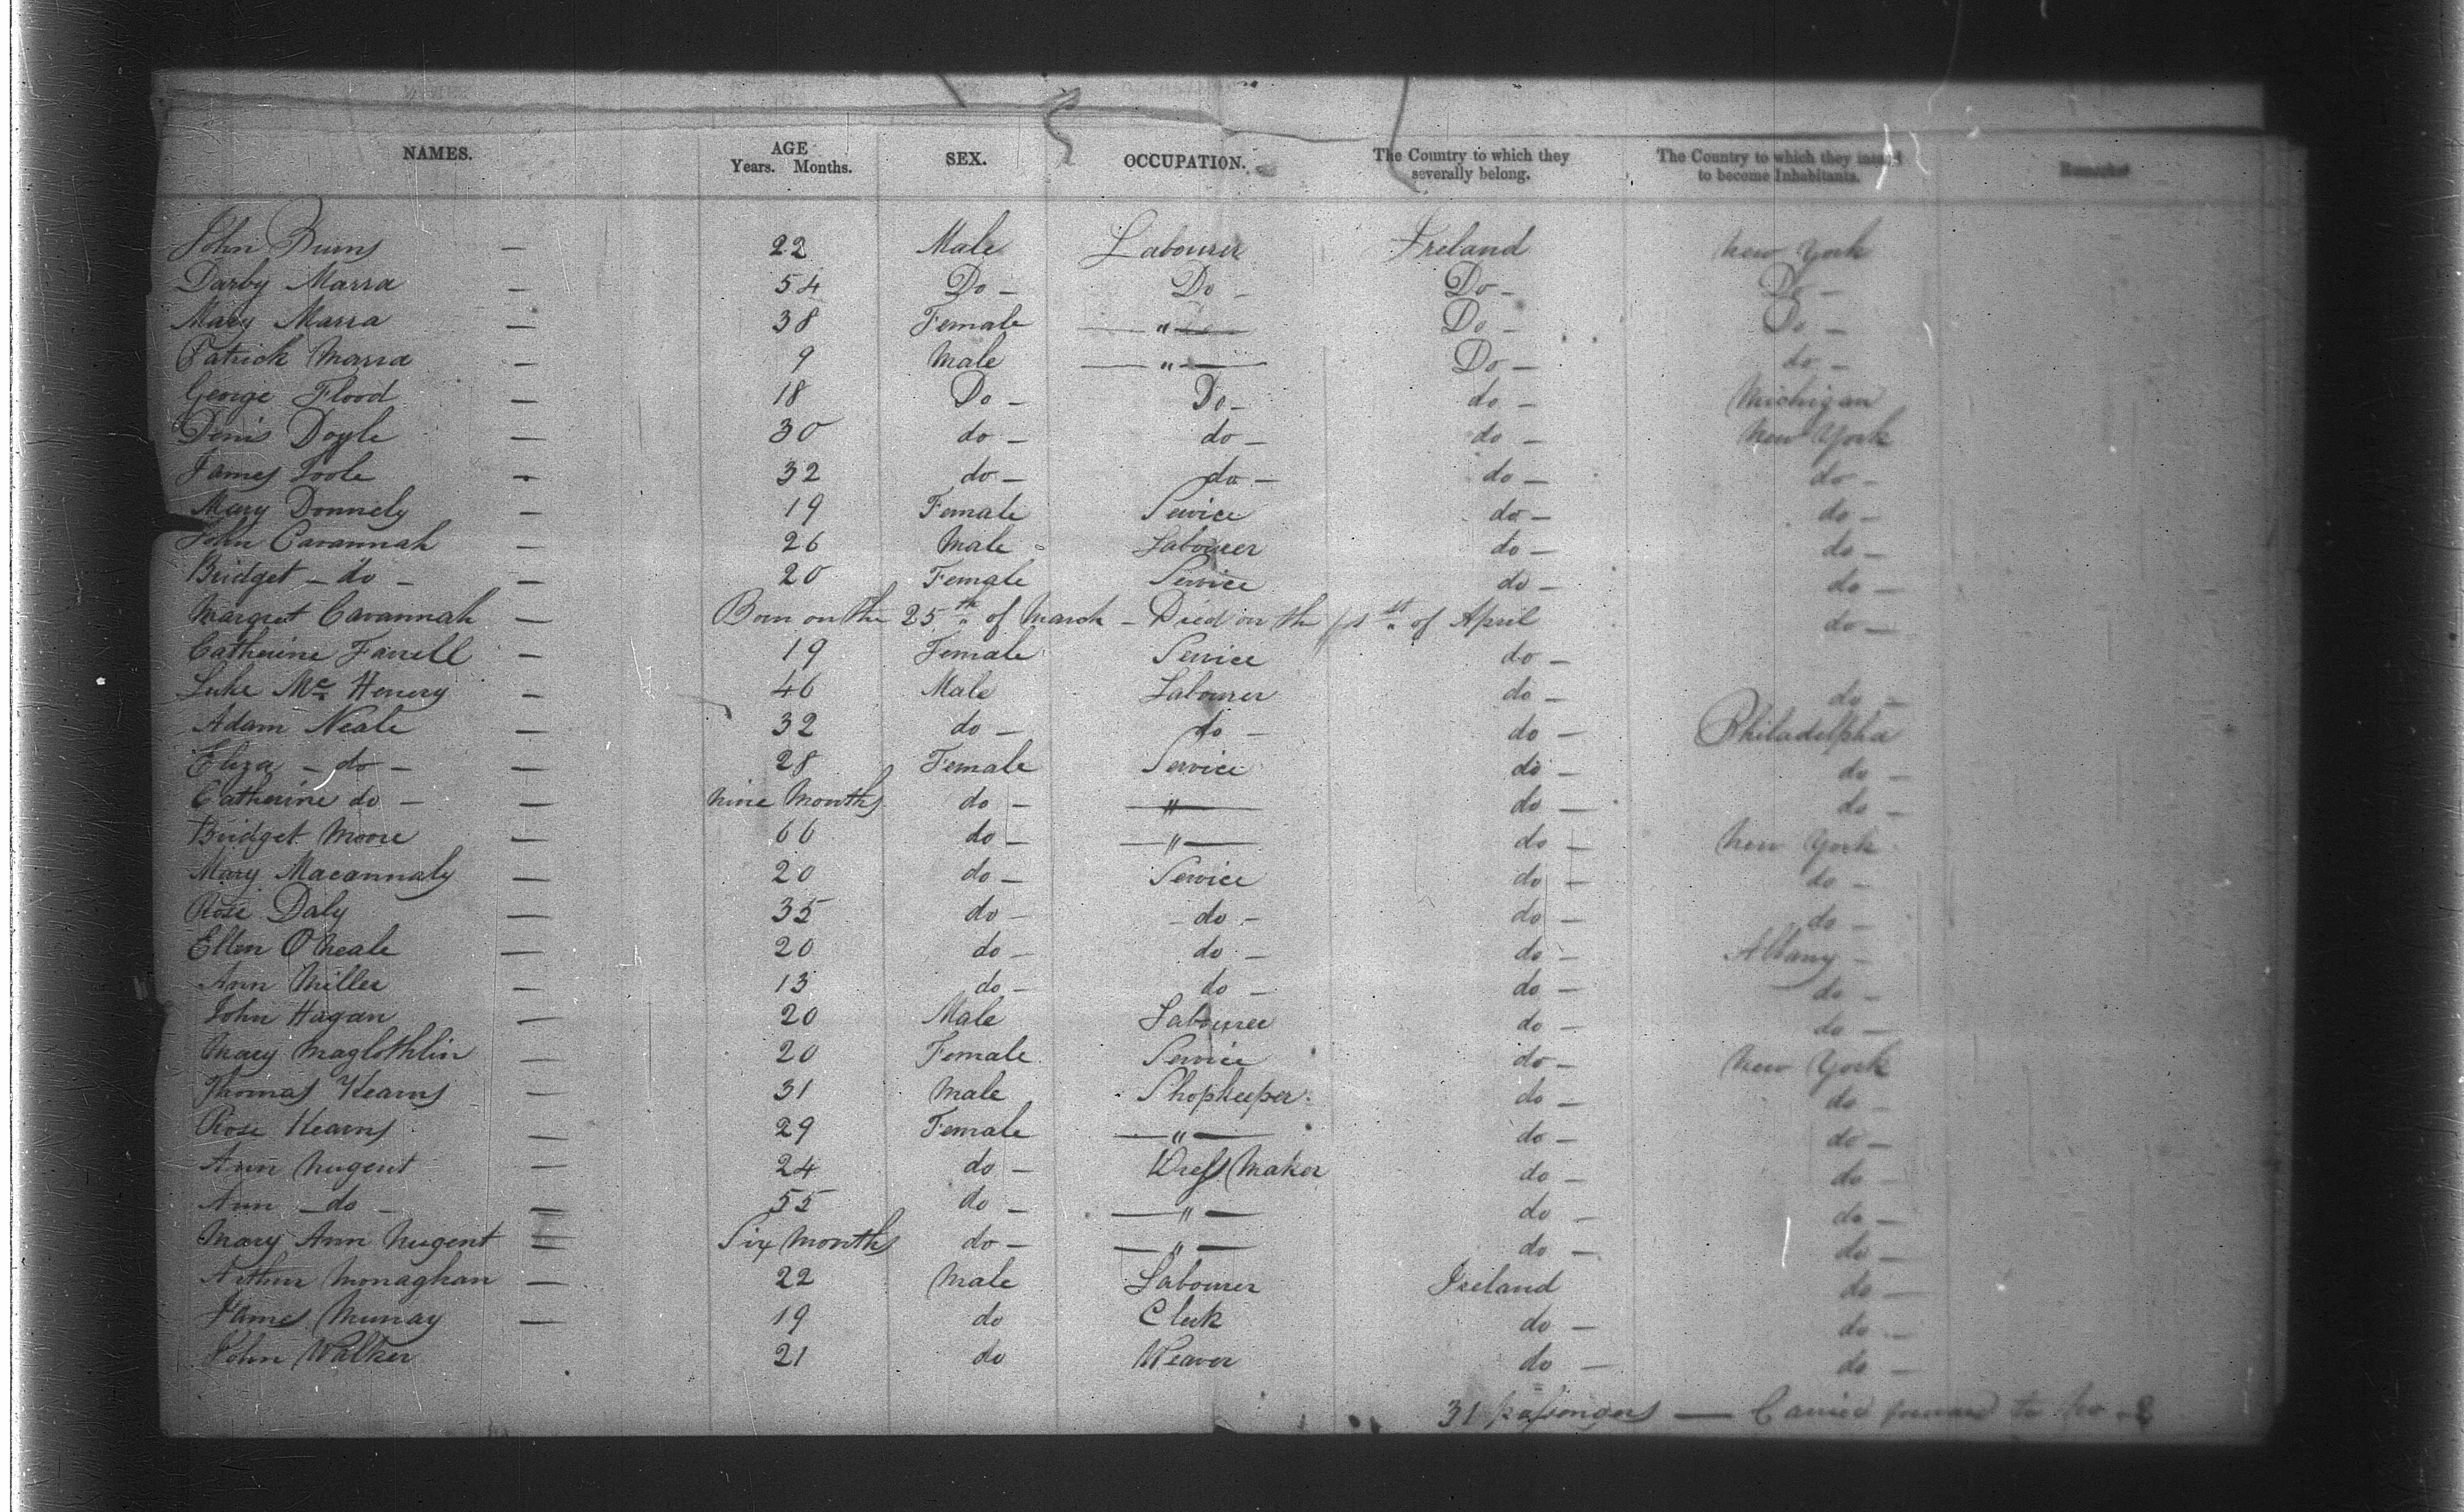 NAMES. AGE Years. Months. SEX. OCCUPATION. The Country to which they severally belong. The Country to which they intend to become Inhabitants. Remarks
John Burns — 22 Male Labourer Ireland New York
Darby Marra — 54 Do — Do — Do — Do —
Mary Marra — 38 Female — " — Do — Do —
Patrick Marra — 9 Male — " — Do — do —
George Flood — 18 Do — Do — do — Michigan
Denis Doyle — 30 do — do — do — New York
James Toole — 32 do — do — do — do —
Mary Donnely — 19 Female Service do — do —
John Cavannah — 26 Male Labourer do — do —
Bridget — do — — 20 Female Service do — do —
Margret Cavannah — Born on the 25th of March — Died on the 1st of April do —
Catherine Farrell — 19 Female Service do —
Luke Mc Henery — 46 Male Labourer do — do —
Adam Neale — 32 do — do — do — Philadelpha
Eliza — do — — 28 Female Service do — do —
Catherine do — — Nine Months do — — " — do — do —
Bridget Moore — 66 do — — " — do — New York
Mary Macannaly — 20 do — Service do — do —
Rose Daly — 35 do — — do — do — do —
Ellen O Neale — 20 do — do — do — Albany —
Ann Miller — 13 do — do — do — do —
John Hagan — 20 Male Labourer do — do —
Mary Maglothlin — 20 Female Service do — New York
Thomas Kearns — 31 Male Shopkeeper do — do —
Rose Kearns — 29 Female — " — do — do —
Ann Nugent — 24 do — Dress Maker do — do —
Ann — do — — 55 do — — " — do — do —
Mary Ann Nugent — Six Months do — — " — do — do —
Arthur Monaghan — 22 Male Labourer Ireland do —
James Murray — 19 do Clerk do — do —
John Walker 21 do Weaver do — do —
31 passengers — Carried forward to No 2